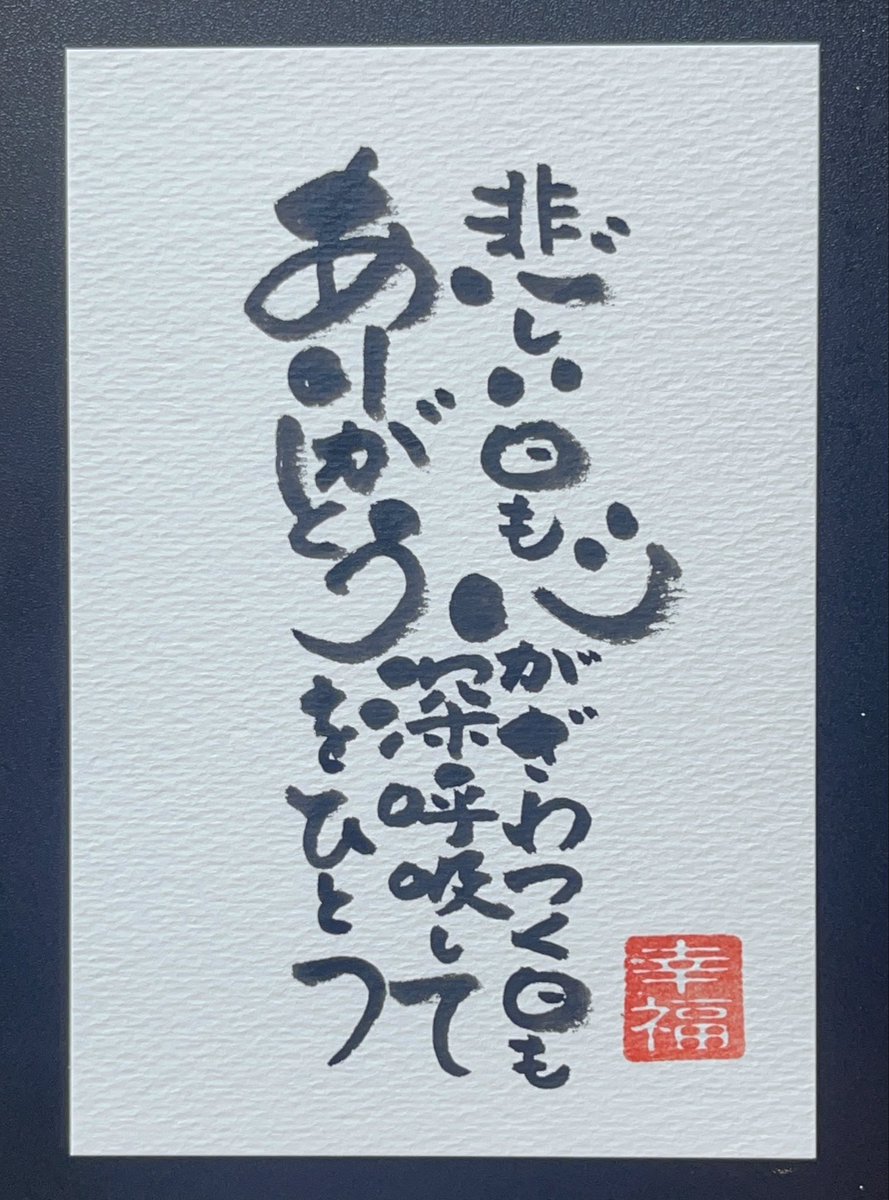 悲しい日も
心がざわつく日も
深呼吸して
ありがとう
をひとつ
幸福